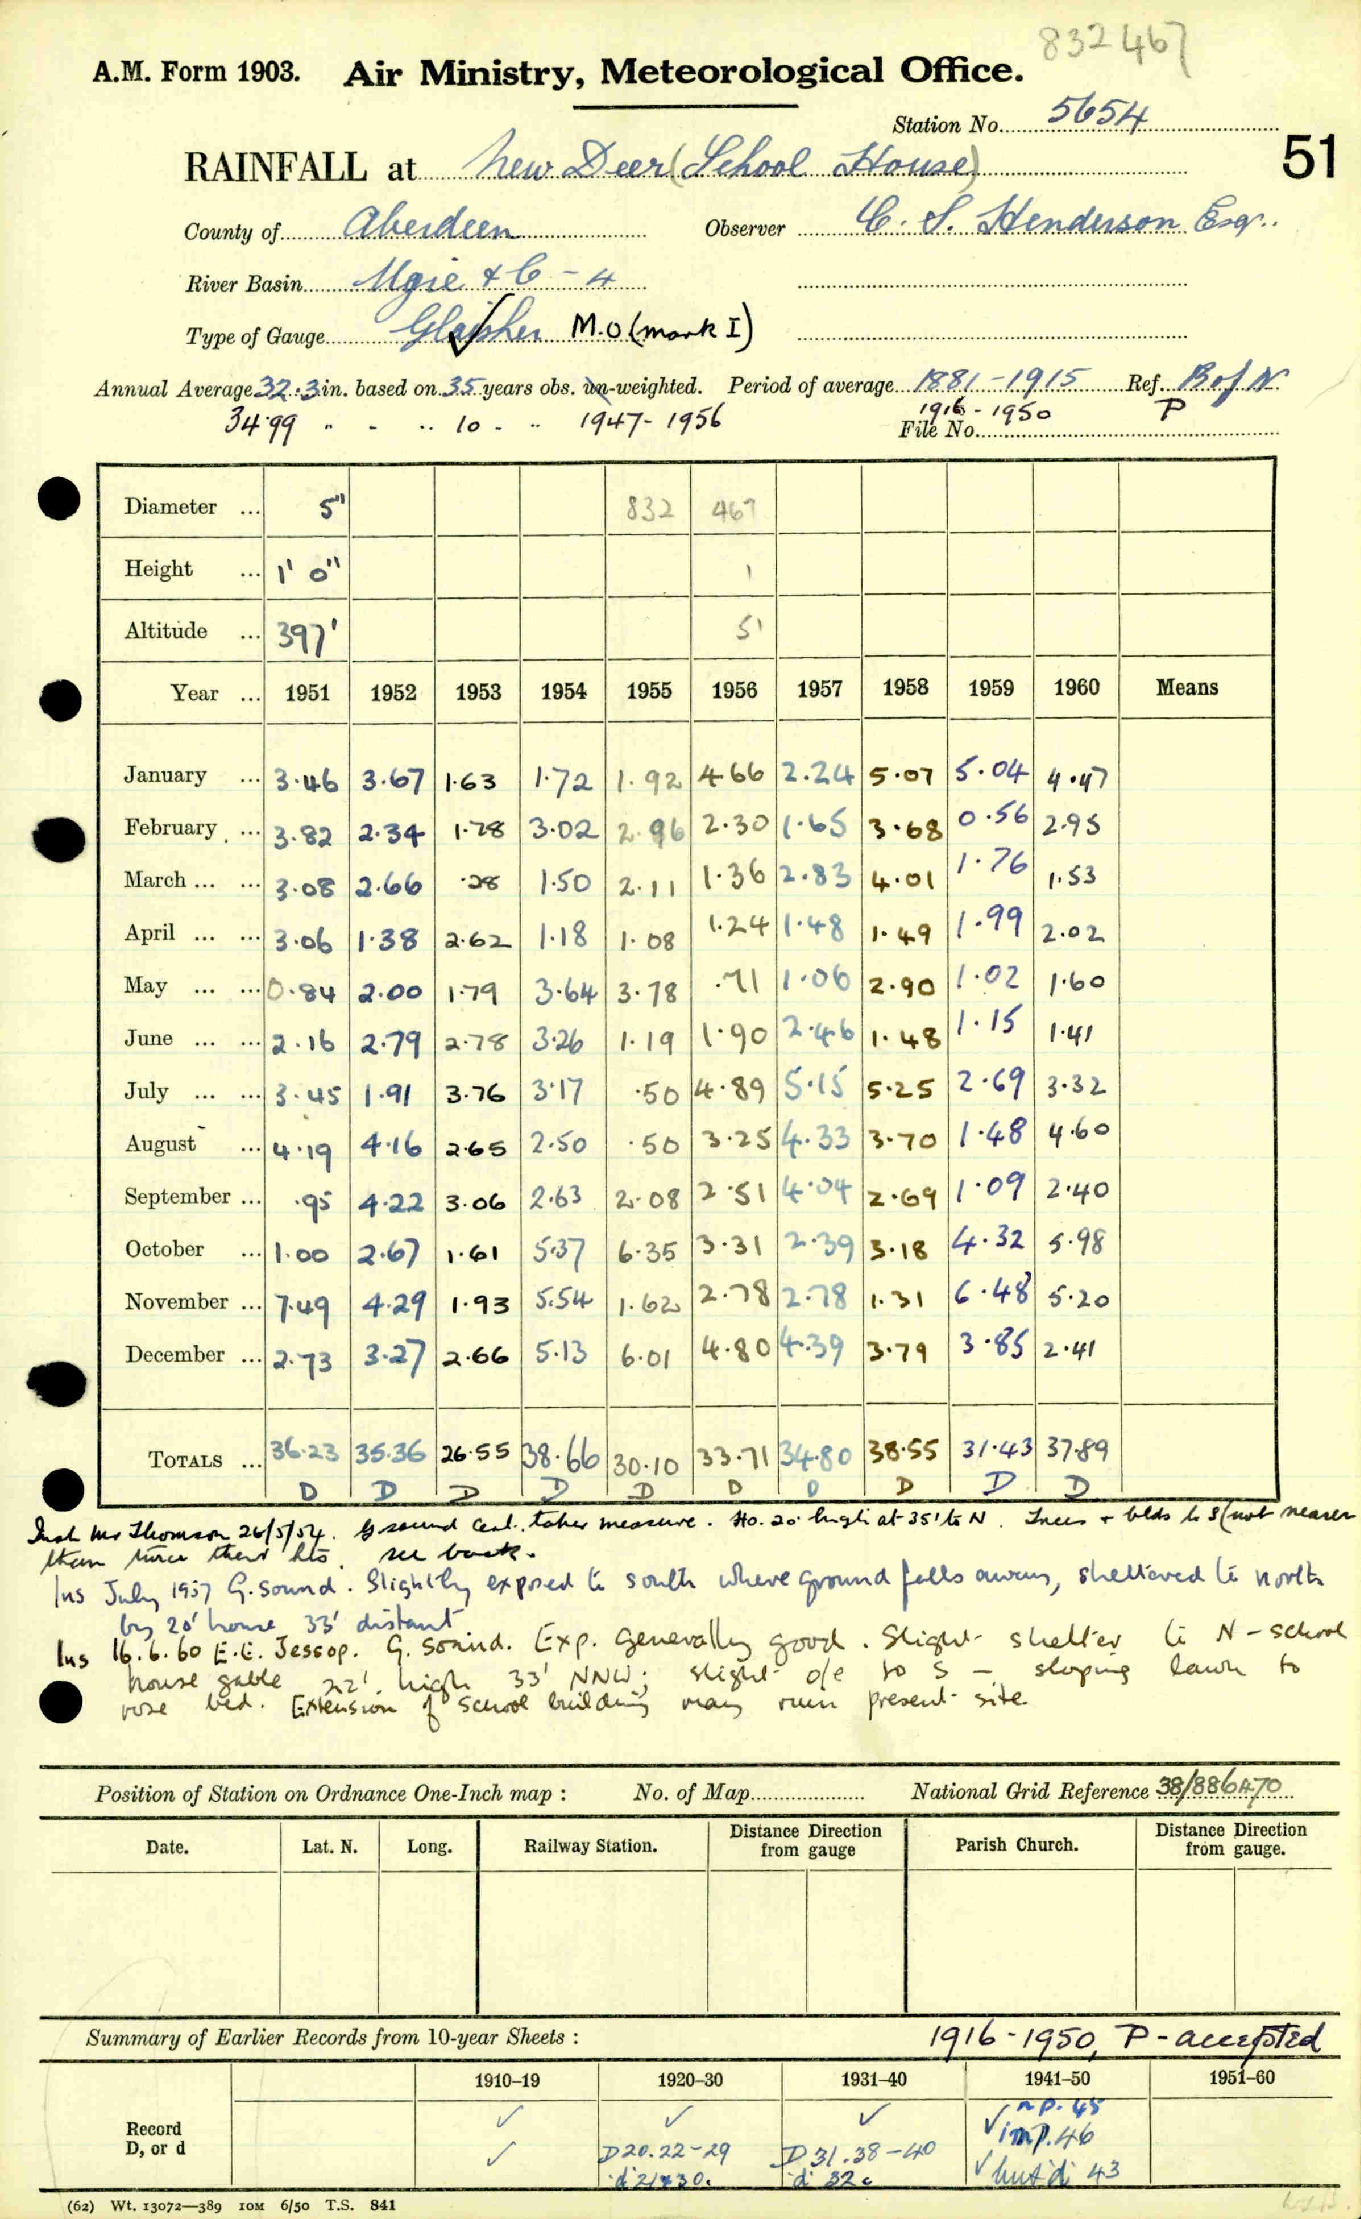 832467
A.M. Form 1903. Air Ministry, Meteorological Office.
Station No. 5654
51
RAINFALL at New Deer (School House)
County of Aberdeen Observer C. S. Henderson Esq.
River Basin Ugie & C - 4
Type of Gauge Glaisher M.O (mark I)
Annual Average 32.3 in. based on 35 years obs. un-weighted. Period of average 1881-1915 Ref. B of N.
34.99 " - " 10 - " 1947-1956 1916-1950 P
File No.
Diameter ... 5" 832 467
Height ... 1' 0" 1
Altitude ... 397' 51
Year ... 1951 1952 1953 1954 1955 1956 1957 1958 1959 1960 Means
January ... 3.46 3.67 1.63 1.72 1.92 4.66 2.24 5.07 5.04 4.47
February ... 3.82 2.34 1.78 3.02 2.96 2.30 1.65 3.68 0.56 2.95
March ... ... 3.08 2.66 .28 1.50 2.11 1.36 2.83 4.01 1.76 1.53
April ... ... 3.06 1.38 2.62 1.18 1.08 1.24 1.48 1.49 1.99 2.02
May ... ... 0.84 2.00 1.79 3.64 3.78 .71 1.06 2.90 1.02 1.60
June ... ... 2.16 2.79 2.78 3.26 1.19 1.90 2.46 1.48 1.15 1.41
July ... ... 3.45 1.91 3.76 3.17 .50 4.89 5.15 5.25 2.69 3.32
August ... 4.19 4.16 2.65 2.50 .50 3.25 4.33 3.70 1.48 4.60
September ... .95 4.22 3.06 2.63 2.08 2.51 4.04 2.69 1.09 2.40
October ... 1.00 2.67 1.61 5.37 6.35 3.31 2.39 3.18 4.32 5.98
November ... 7.49 4.29 1.93 5.54 1.62 2.78 2.78 1.31 6.48 5.20
December ... 2.73 3.27 2.66 5.13 6.01 4.80 4.39 3.79 3.85 2.41
TOTALS ... 36.23 35.36 26.55 38.66 30.10 33.71 34.80 38.55 31.43 37.89
D D D D D D D D D D
Mr Thomson 26/5/54. G sound taker measure. Ho. 20' high at 35' to N. Trees + blds to S (not nearer
than twice their hts. see back.
Ins July 1957 G. sound. Slightly exposed to south where ground falls away, sheltered to north
by 20' house 33' distant
Ins 16.6.60 E.E. Jessop. G. sound. Exp. generally good. Slight shelter to N - school
house gable 22' high 33' NNW; slight o/e to S - sloping lawn to
rose bed. Extension of school building may ruin present site.
Position of Station on Ordnance One-Inch map : No. of Map National Grid Reference 38/886470
Date. Lat. N. Long. Railway Station. Distance Direction from gauge Parish Church. Distance Direction from gauge.
Summary of Earlier Records from 10-year Sheets : 1916-1950, P - accepted
1910-19 1920-30 1931-40 1941-50 1951-60
Record ✓ ✓ ✓ ✓ n.p. 45
imp. 46
D, or d ✓ D 20.22-29 D 31.38-40 ✓ but d 43
d 21 & 30. d 32
(62) Wt. 13072—389 10M 6/50 T.S. 841